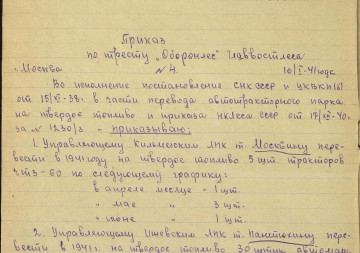 Приказ
по тресту „Оборонлес" Главвостлеса
г. Москва № 4. 10/I-41 года
Во исполнение постановление СНК СССР и ЦКВКП(б)
от 15/VI-38г. в части перевода автотракторного парка
на твердое топливо и приказа НКЛеса СССР от 17/XII-40г.
за № 1230/э. - приказываю:
1. Управляющему Кильмезским ЛПК т. Москвину пере-
вести в 1941 году на твердое топливо 5 шт. тракторов
ЧТЗ-60 по следующему графику:
в апреле месяце - 1 шт.
" мае " 3 шт.
" июне " 1 шт.
2. Управляющему Ижевским ЛПК т. Пантюхину пере-
вести в 1941 г. на твердое топливо 30 штук автомаш